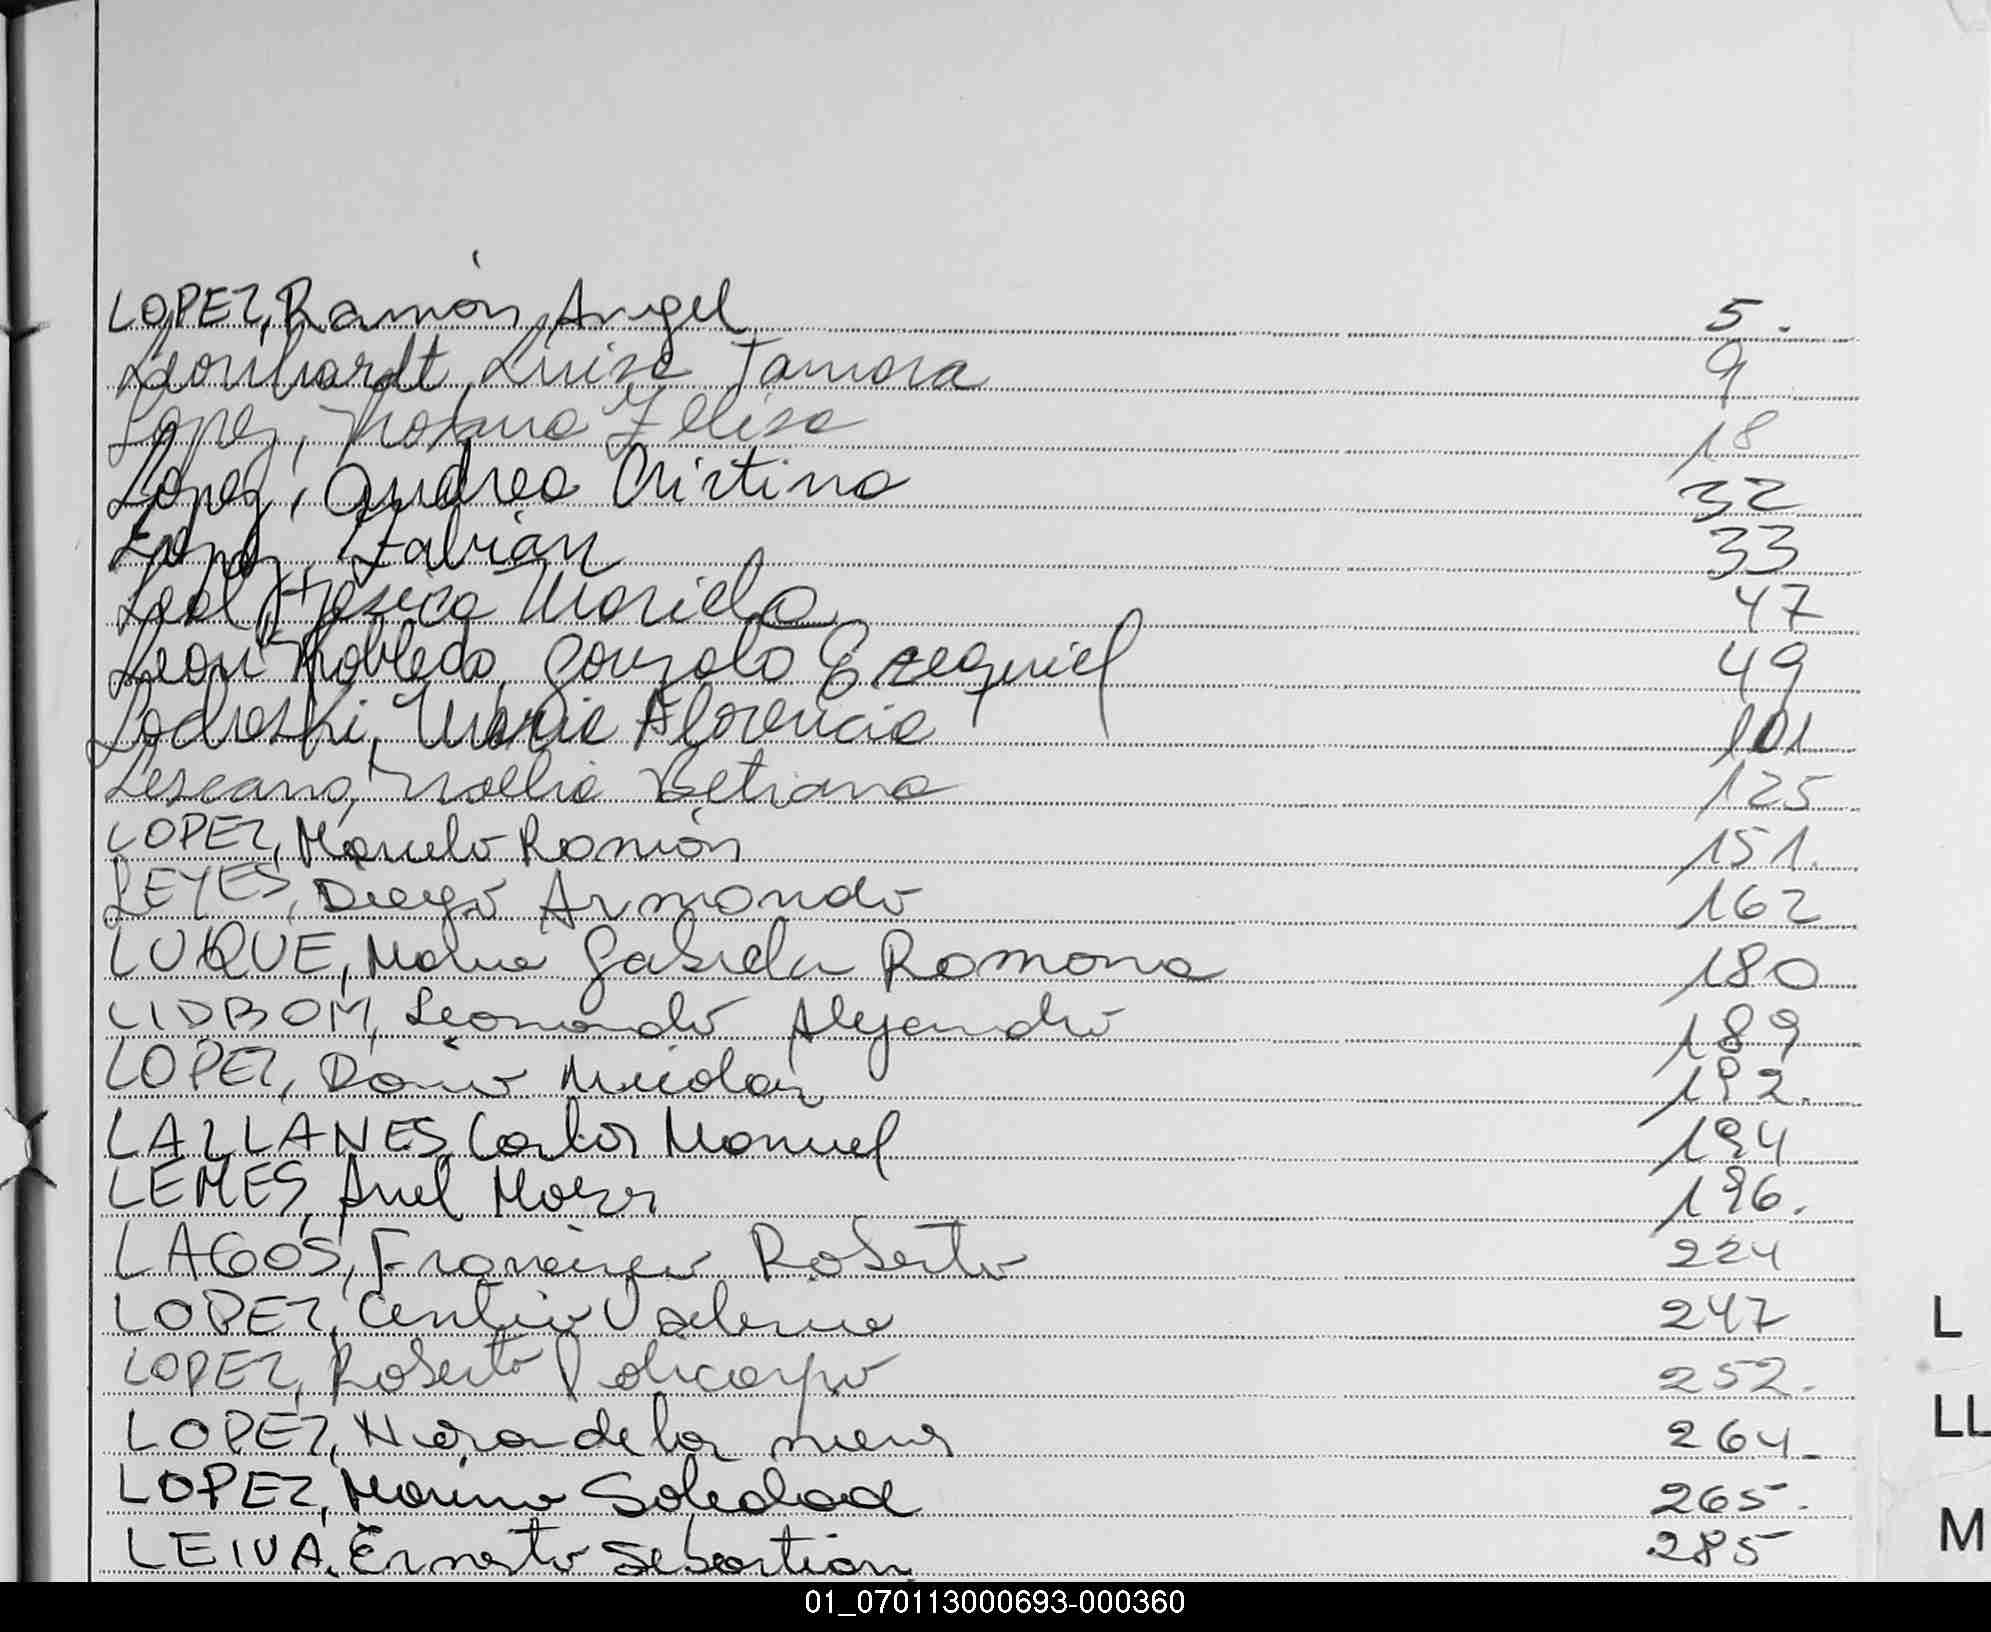 LOPEZ, Ramón Angel 5.
Leonhardt, Luisa Tamara 9
Lopez, Rosana Felisa 18
Lopez, Andrea Cristina 32
Lopez, Fabián 33
Leal, Jesica Mariela 47
Leon Robledo, Gonzalo Ezequiel 49
Maria Florencia 101
Lescano, Noelia Betiana 125
LOPEZ, Marcelo Ramón 151.
LEYES, Diego Armando 162
LUQUE, Maria Gabriela Ramona 180
LIDBOM, Leonardo Alejandro 189
LOPEZ, Dario Nicolas 192.
LAZLANES, Carlos Manuel 194
LEMES, Ariel 196.
LAGOS, Francisco Roberto 224
LOPEZ, Valeria 247
LOPEZ, Roberto Policarpo 252.
LOPEZ, de las 264.
LOPEZ, Marina Soledad 265.
LEIVA, Ernesto Sebastian 285
L
LL
M
01_070113000693-000360